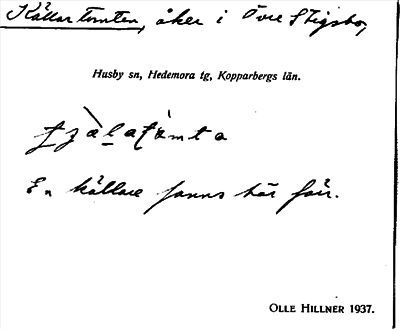 Källartomten, åker i Övre Stigsbo,
Husby sn, Hedemora tg, Kopparbergs län.
En källare fanns här förr.
OLLE HILLNER 1937.